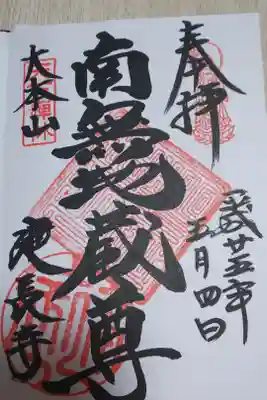 奉拝
平成廿五年
五月四日
南無地蔵尊
大本山
建長寺